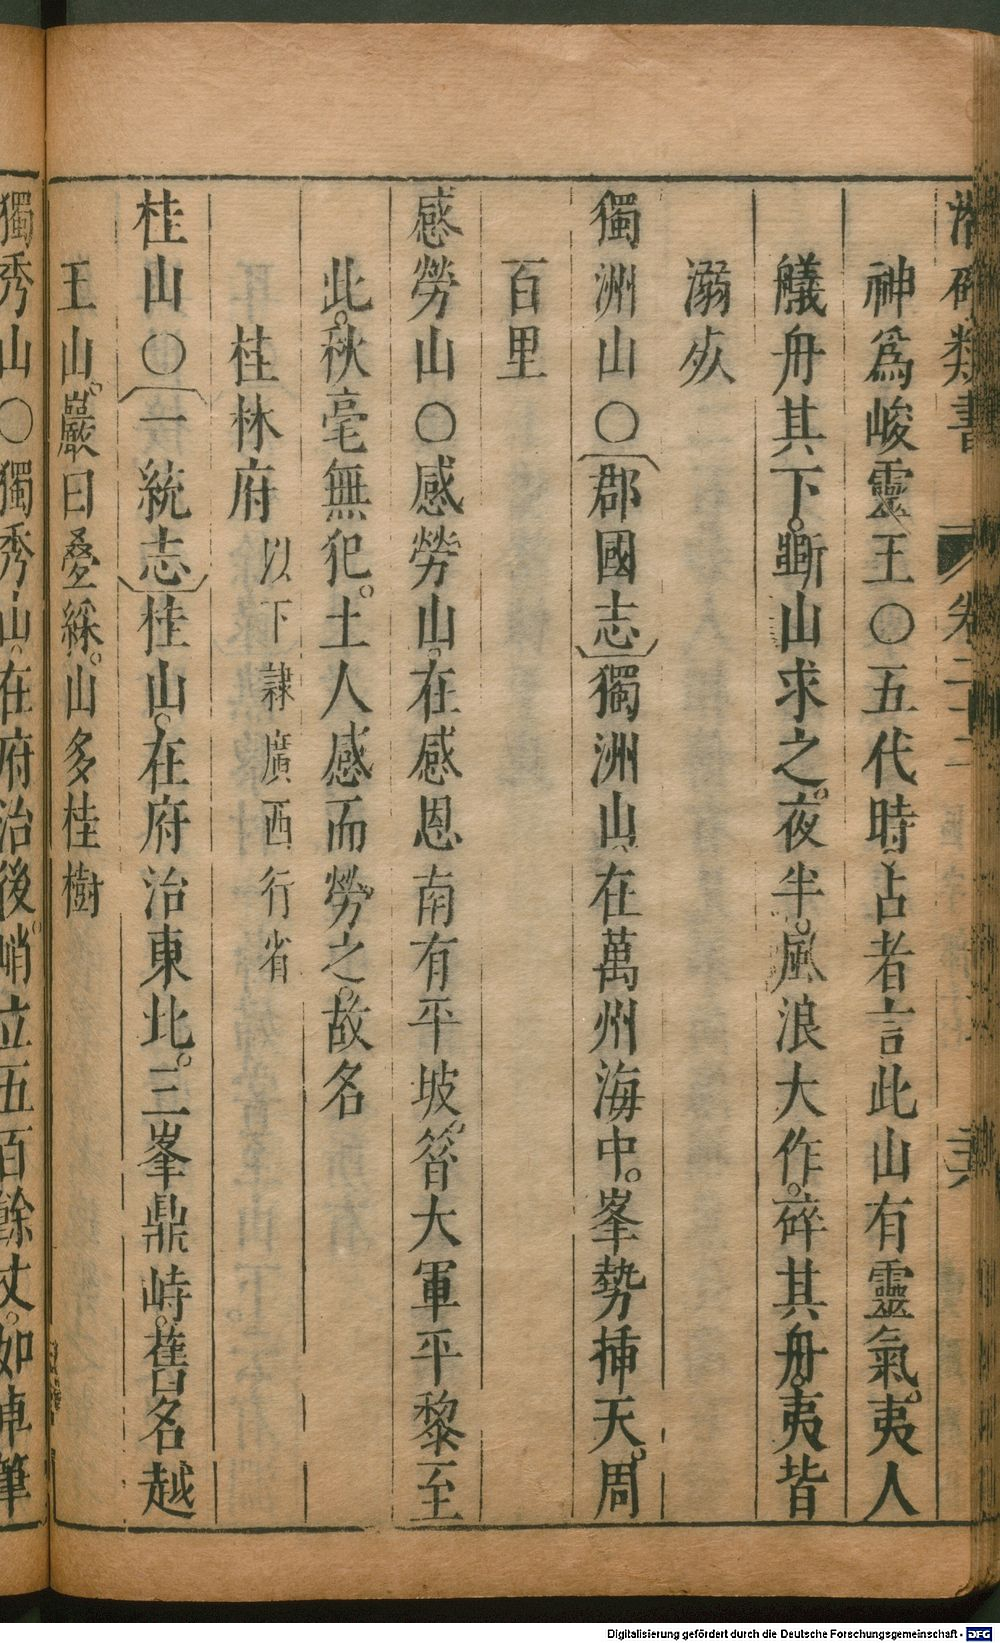 潛確類書 卷二二
神爲峻靈王○五代時占者言此山有靈氣。夷人
艤舟其下。斸山求之。夜半。風浪大作。碎其舟。夷皆
溺死
獨洲山○〔郡國志〕獨洲山。在萬州海中。峯勢揷天。周
百里
感勞山○感勞山。在感恩南有平坡。昝大軍平黎至
此。秋毫無犯。土人感而勞之。故名
桂林府 以下隷廣西行省
桂山○〔一統志〕桂山。在府治東北。三峯鼎峙。舊名越
王山。巖曰叠綵。山多桂樹
獨秀山○獨秀山。在府治後。峭立五百餘丈。如卓筆
Digitalisierung gefördert durch die Deutsche Forschungsgemeinschaft - DFG